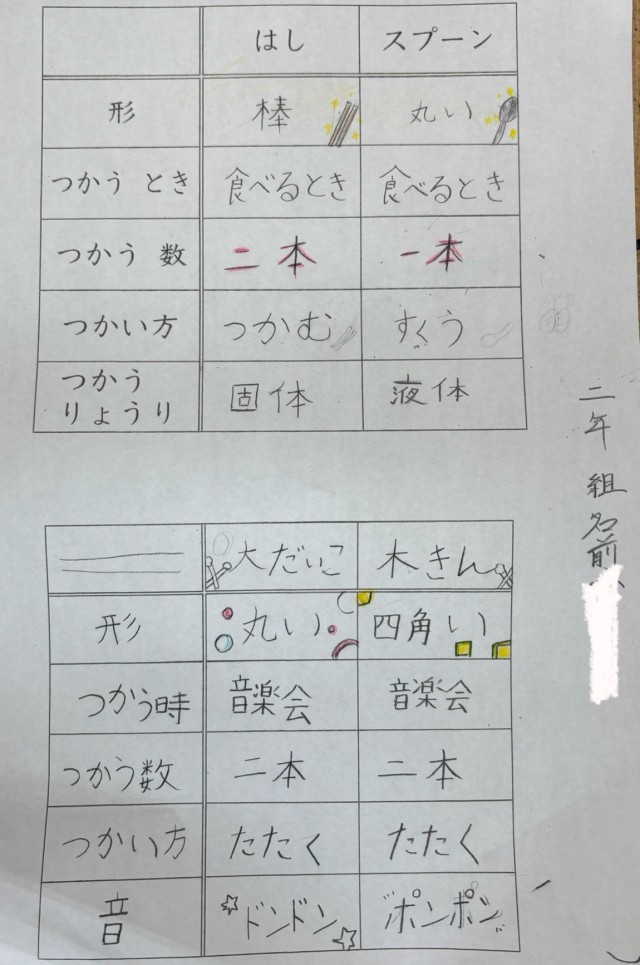 はし スプーン
形 棒 丸い
つかう とき 食べるとき 食べるとき
つかう 数 二本 一本
つかい方 つかむ すくう
つかう
りょうり 固体 液体
二年 組 名前
大だいこ 木きん
形 丸い 四角い
つかう時 音楽会 音楽会
つかう数 二本 二本
つかい方 たたく たたく
音 ドンドン ポンポン